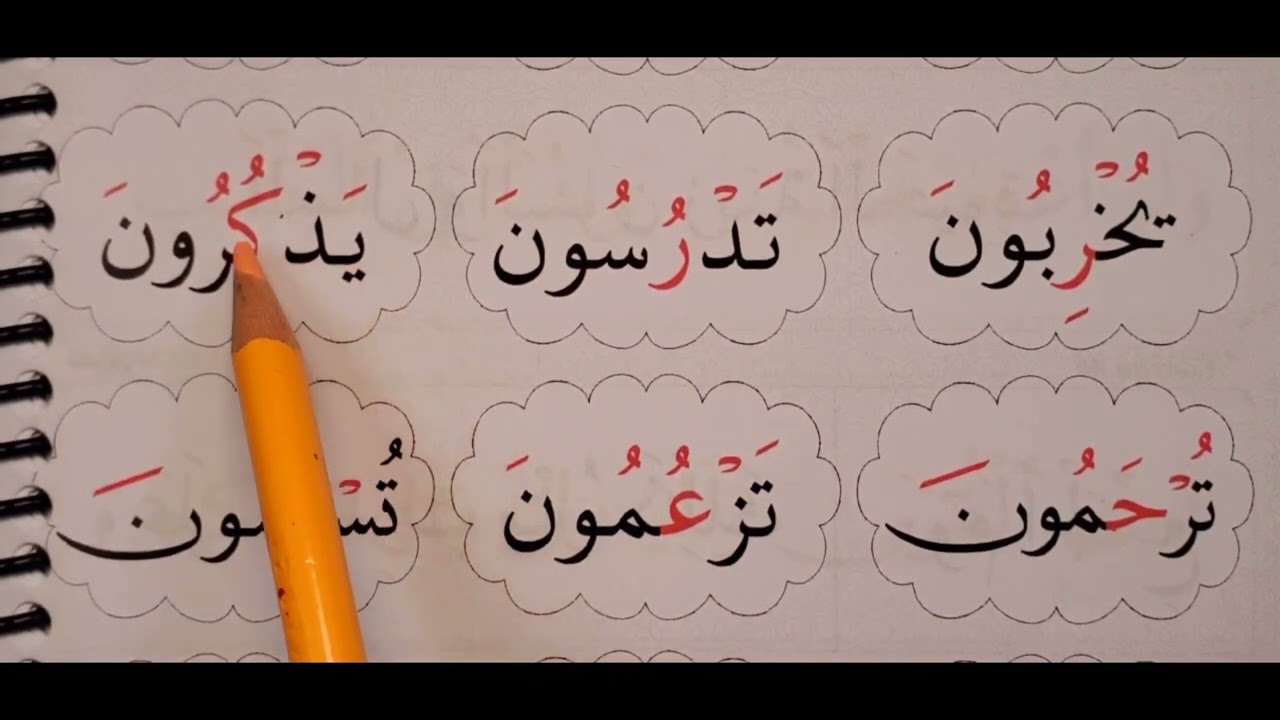 يُخْرِبُونَ تَدْرُسُونَ يَذْكُرُونَ
تُرْحَمُونَ تَزْعُمُونَ